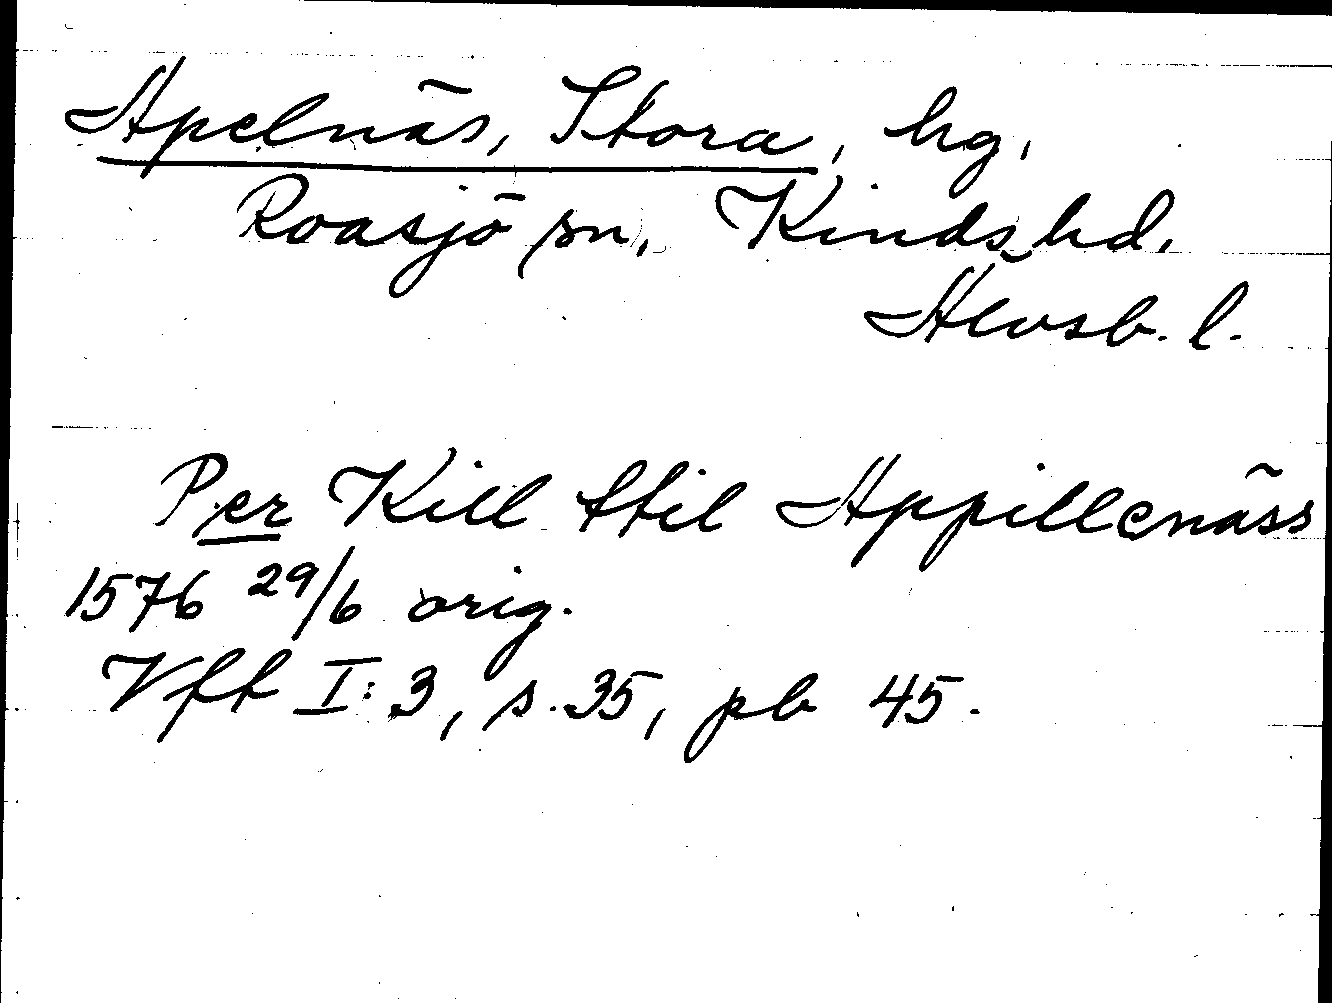 Apelnäs, Stora, hg,
Roasjö sn, Kinds hd,
Älvsb. l.
Per Kill ttil Appillenäss
1576 29/6 orig.
Vff I:3, s. 35, pb 45.